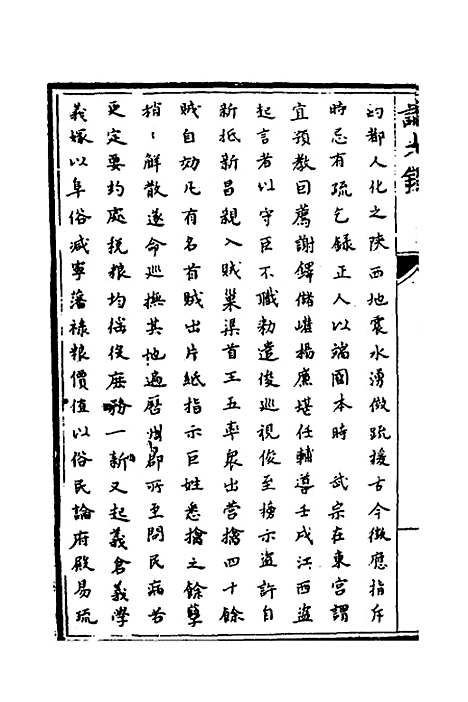 均都人化之陝西地震水湧俊疏援古今徵應指斥
時忌有疏乞錄正人以端國本時　武宗在東宮謂
宜預教因薦謝鐸儲巏楊廉堪任輔導壬戌江西盜
起言者以守臣不職勅遣俊巡視俊至揚示盜許自
新抵新昌親入賊巢渠首王五率衆出營擒四十餘
賊自効凡有名首賊出片紙指示巨姓悉擒之餘孽
稍〻解散遂命巡撫其地遍歷州郡所至問民病苦
更定要約處稅粮均徭役庶務一新又起義倉義學
義塚以阜俗減寧藩祿粮價值以俗民論府殿易琉